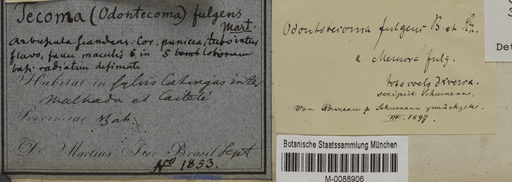 Tecoma (Odontecoma) fulgens
Mart.
Arbuscula scandens. Cor. punicea, tubo intus
flavo, fauce maculis 6 in 5
basi radiatim
Habitat in silvis Catingas inter
Malhada et Caitété
Provinciae Bah.
Dr. Martius Iter Brasil. Sept
1853.
Odontotecoma fulgens B. et
e
scripsit Schumann.
von Bureau & Schumann zurückgek.
III. 1897.
Botanische Staatssammlung München
M-0088906
Det